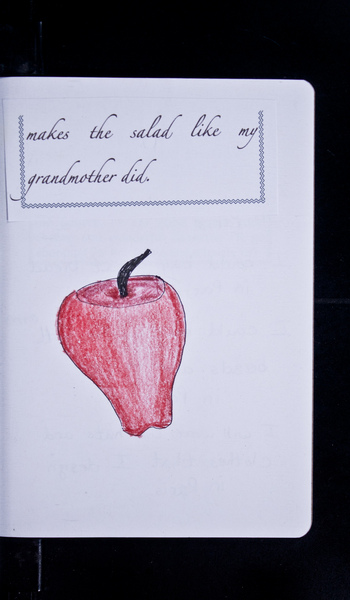 makes the salad like my
grandmother did.